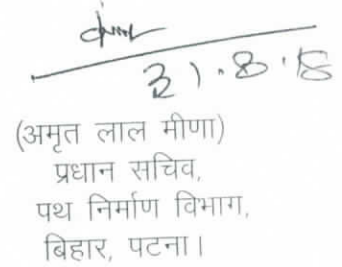 31.8.18
(अमृत लाल मीणा)
प्रधान सचिव,
पथ निर्माण विभाग,
बिहार, पटना।